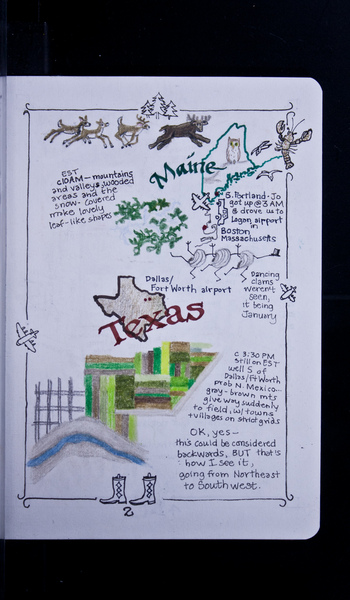 Maine
EST
c10AM — mountains
and valleys, wooded
areas and the
snow-covered
make lovely
leaf-like shapes
S. Portland - Jo
got up @ 3 AM
& drove us to
Logan airport
in
Boston
Massachusetts
Dancing
clams
weren't
seen,
it being
January
Dallas/
Fort Worth airport
Texas
c 3:30 PM
still on EST
well S of
Dallas/Ft Worth
prob N. Mexico...
gray-brown mts
give way suddenly
to field, w/ towns
+ villages on strict grids
OK, yes —
this could be considered
backwards, BUT that's
how I see it,
going from Northeast
to Southwest.
2